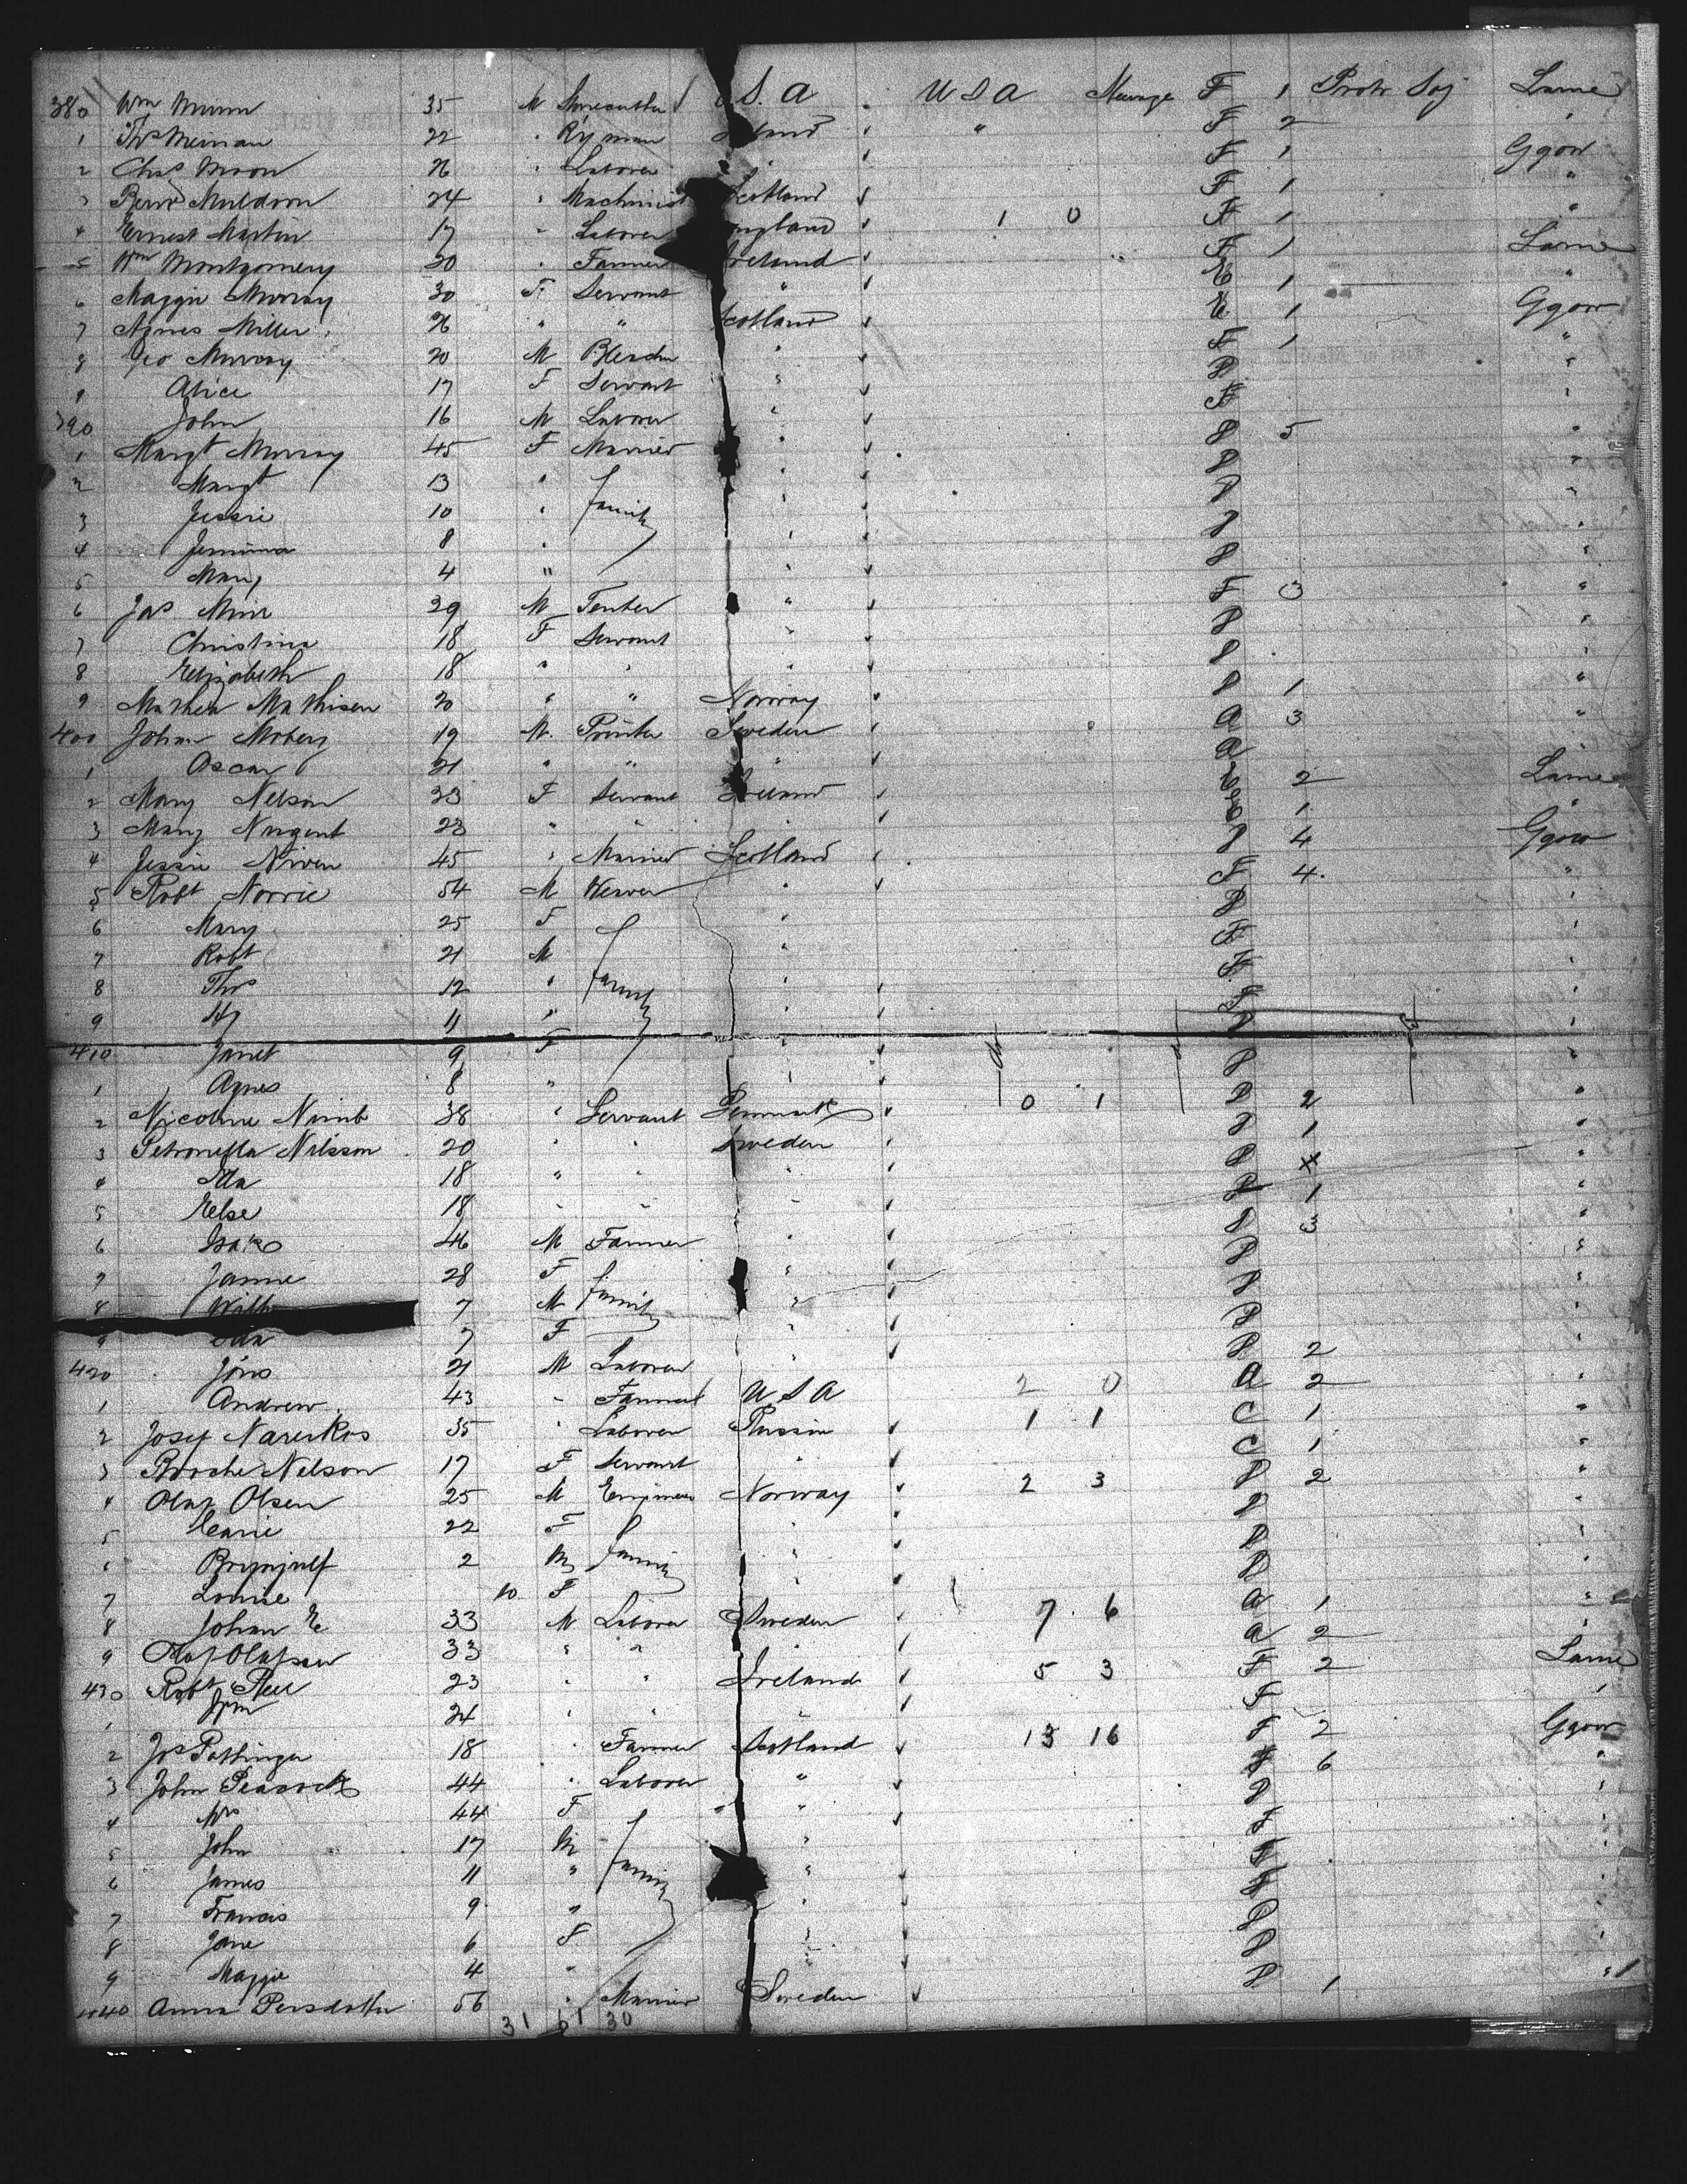 380 Wm Munn 35 M Stonecutter U.S.A U S A Steerage F 1 Protr Soj Larne
1 Thos 22 " Ry man Ireland " F 2 "
2 Chas Moon 26 " Laborer " F 1 Ggow
3 Bernd Muldoon 24 " Machinist Scotland F 1 "
4 Ernest Martin 17 " Laborer England 1 0 F 1 "
5 Wm Montgomery 20 " Farmer Ireland F 1 Larne
6 Maggie Murray 30 F Servant " E 1 "
7 Agnes Miller 26 " " Scotland E 1 Ggow
8 Geo Murray 20 M " F 1 "
9 Alice 17 F Servant " P "
390 John 16 M Laborer " F "
1 Margt Murray 45 F Married " P 5 "
2 Margt 13 " family " P "
3 Jessie 10 " " P "
4 Jemima 8 " " P "
5 Mary 4 " " P "
6 Jas 29 M Tenter " F 3 "
7 Christina 18 F Servant " P "
8 Elizabeth 18 " " " P "
9 Mathea Mathisen 20 " " Norway P 1 "
400 Johan Moberg 19 M Printer Sweden A 3 "
1 Oscar 21 " " " A
2 Mary Nelson 33 F Servant Ireland E 2 Larne
3 Mary Nugent 23 " " " E 1 "
4 Jessie Niven 45 " Married Scotland P 4 Ggow
5 Robt Norrie 54 M Weaver " F 4 "
6 Mary 25 F " P "
7 Robt 21 M family " F "
8 Thos 12 " " F "
9 Hy 11 " " F "
410 Janet 9 F " P "
1 Agnes 8 " " P "
2 Nicoline 38 " Servant Denmark 0 1 P 2 "
3 Petronella Nilsson 20 " " Sweden P 1 "
4 18 " " " P X "
5 Else 18 " " " P 1 "
6 Isak 46 M Farmer " P 3 "
7 28 F family " P "
8 7 M " P "
9 Ida 7 F " P "
420 Jöns 21 M Laborer " P 2 "
1 Andrew 43 " Farmer U S A 2 0 A 2
2 Josef 35 " Laborer Russia 1 1 C 1 "
3 Nelson 17 F Servant " C 1 "
4 Olaf Olsen 25 M Engineer Norway 2 3 P 2 "
5 Carrie 22 F family " P "
6 Brynjulf 2 M " P "
7 Louise 10 F " P
8 Johan E 33 M Laborer Sweden 7 6 A 1 "
9 Olaf Olafsson 33 " " " A 2 "
430 Robt 23 " " Ireland 5 3 F 2 Larne
1 24 " " " F "
2 Jos Pottinger 18 " Farmer Scotland 13 16 F 2 Ggow
3 John Peacock 44 " Laborer " F 6 "
4 Mrs 44 F " P "
5 John 17 M family " F "
6 James 11 " " F "
7 Francis 9 " " F "
8 Jane 6 F " P "
9 Maggie 4 " " P "
440 Anna Persdotter 56 " Married Sweden P 1 "
31 61 30